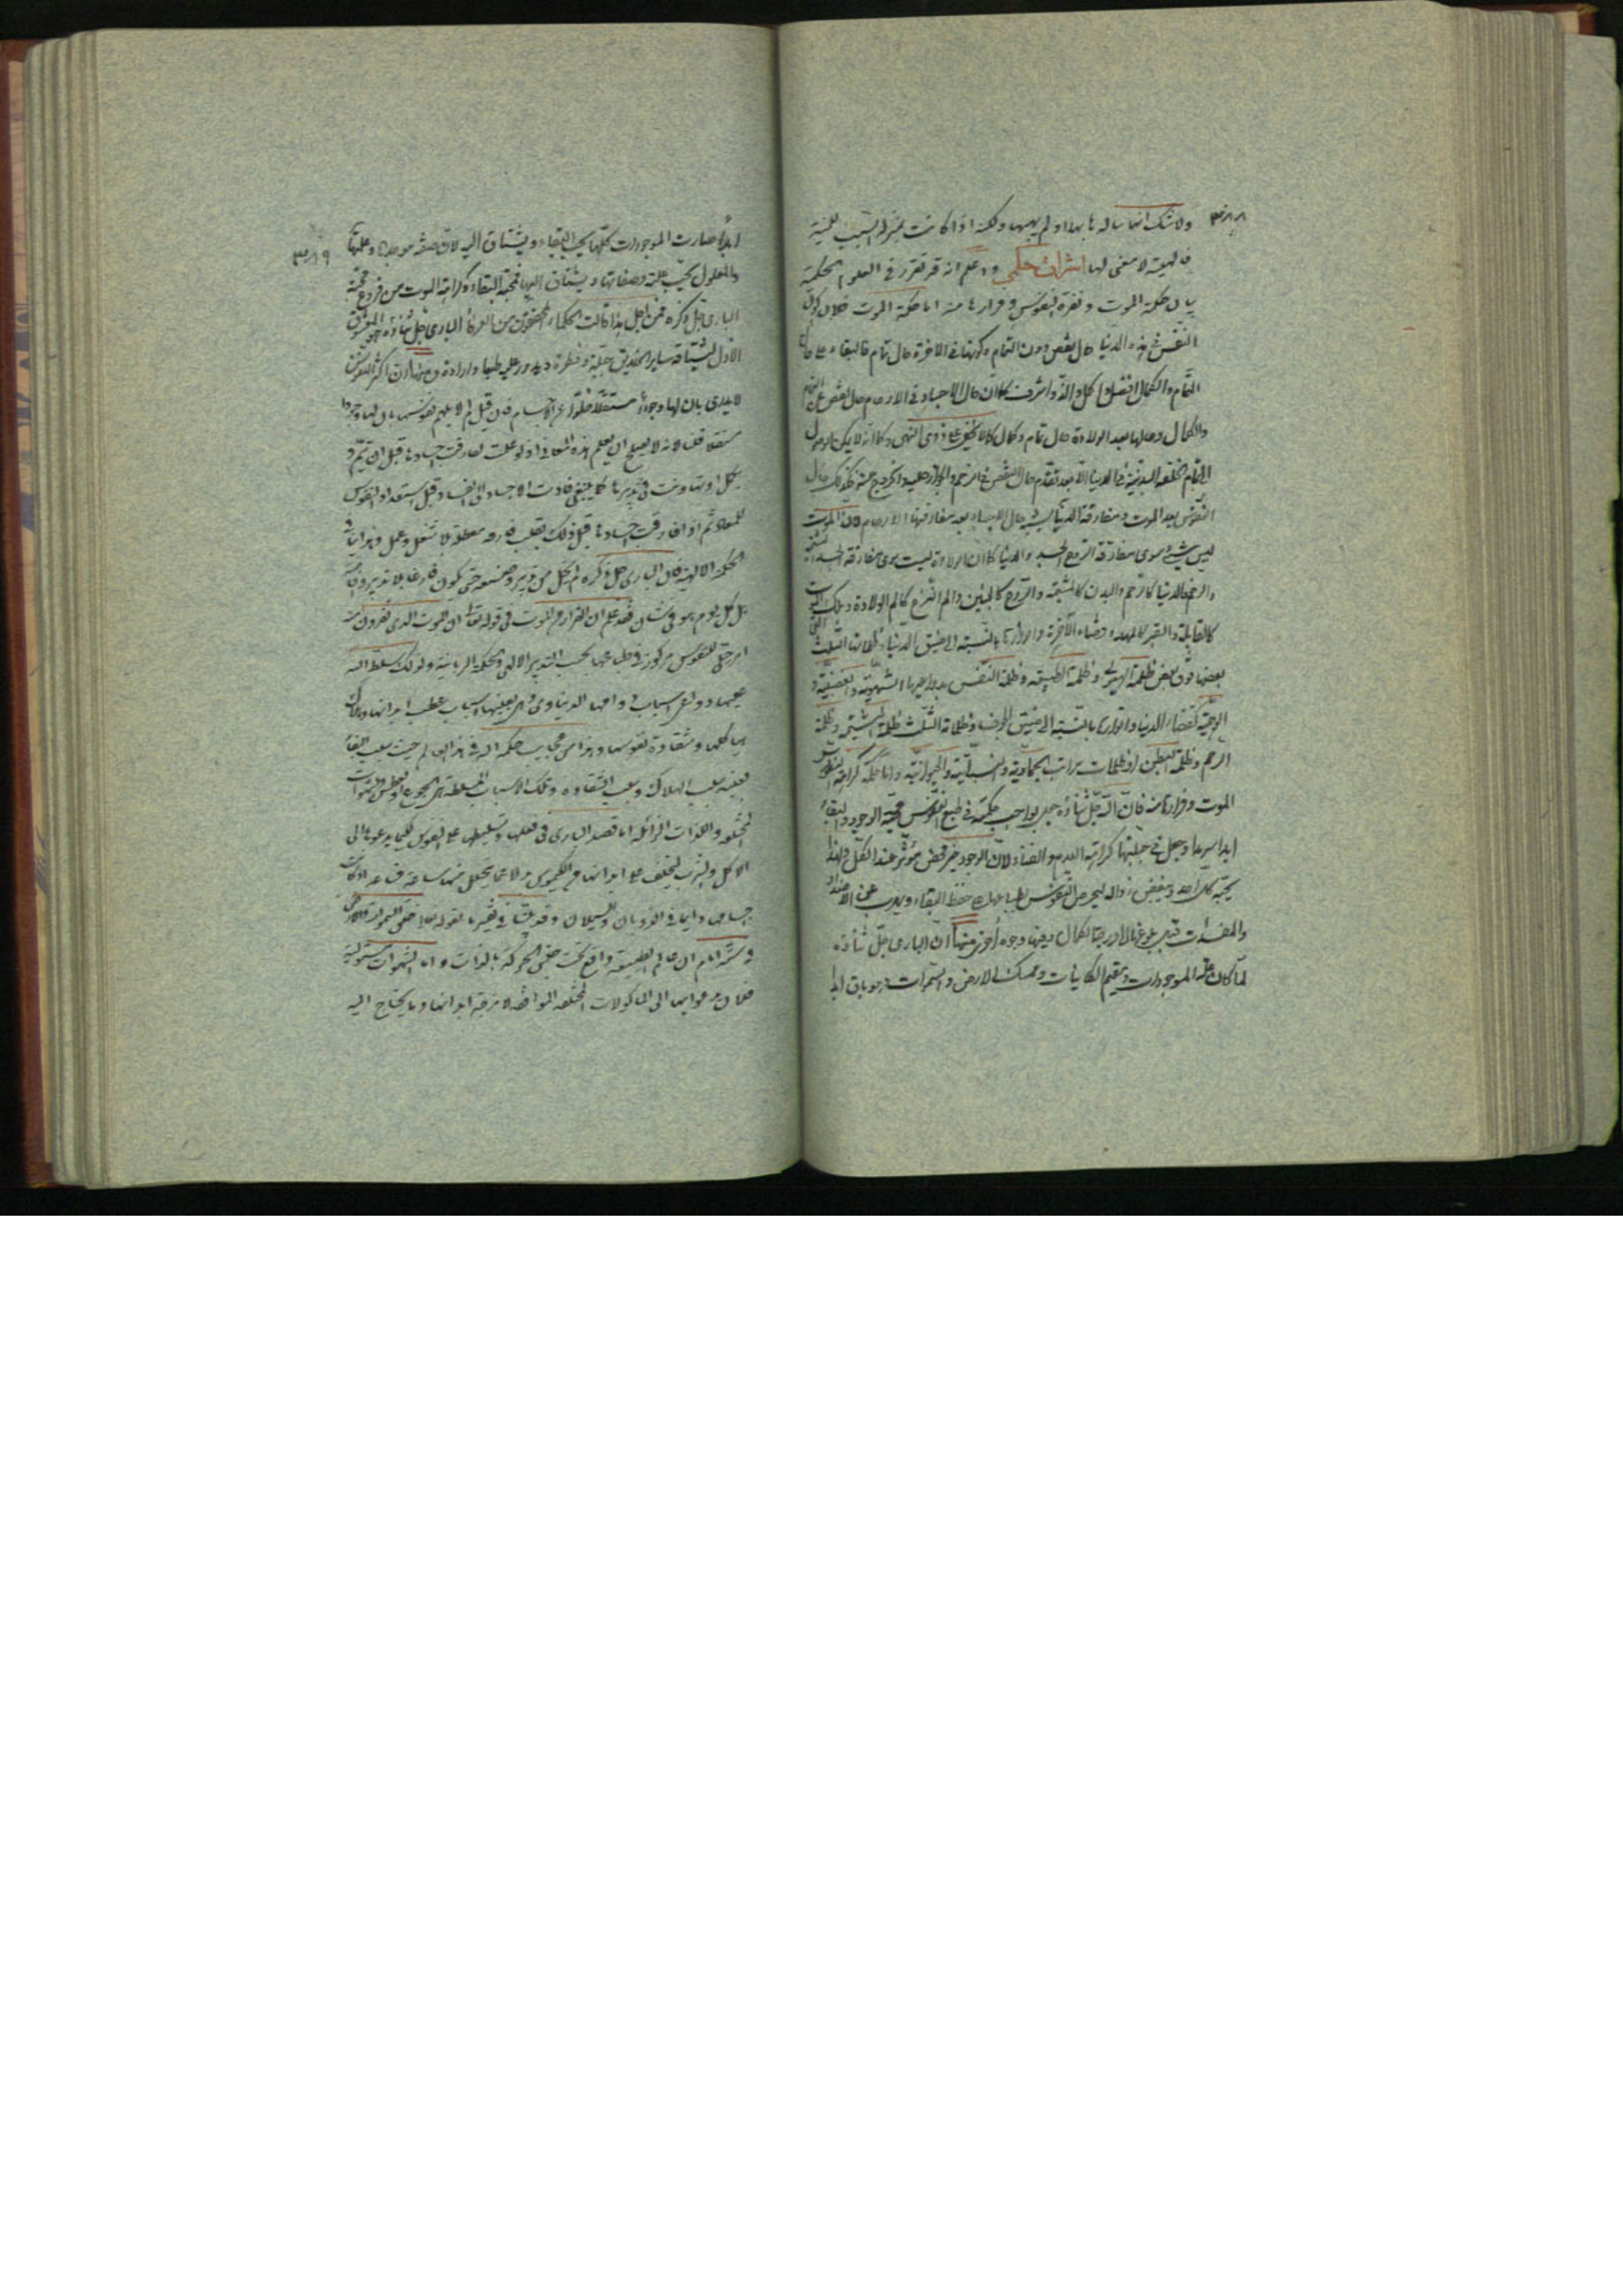 ٣٨٨
ولا شك انها سالها بها او لم يهبها ولكنه اذا كانت بمنزلة السبب للهيئة
فالهيئة لا معنى لها اشراق حكمي واعلم انه قد تقرر في العلوم الحكمية
بيان حكمة الموت ونفرة النفوس وفرارها منه اما حكمة الموت فلان كون
النفس في هذه الدنيا حال نقص دون التمام وكونها في الاخرة حال تمام فالبقاء على حال
التمام والكمال افضل واكمل والذ واشرف كما ان حال الاجساد في الارحام حال نقص عن التمام
والكمال وحالها بعد الولادة حال تمام وكمال كما لا يخفى على ذوي النهى وكما انه لا يمكن الوصول
الى تمام الخلقة البدنية في الدنيا الا بعد تقدم حال النقص في الرحم والجواز عليه والخروج عنه فكذلك حال
النفوس بعد الموت ومفارقة الدنيا يشبه حال الاجساد بعد مفارقتها الارحام فان الموت
ليس شيء سوى مفارقة الروح الجسد والدنيا كما ان الولادة ليست سوى مفارقة الجسد المشيمة
والرحم فالدنيا كالرحم والبدن كالمشيمة والروح كالجنين والم النزع كالم الولادة وملك الموت
كالقابلة والقبر كالمهد وفضاء الآخرة وانوارها بالنسبة الى ضيق الدنيا وظلماتها الثلث التي
بعضها فوق بعض ظلمة الهيولى وظلمة الطبيعة وظلمة النفس بدواعيها الشهوية والغضبية و
الوهمية كفضاء الدنيا وانوارها بالنسبة الى ضيق الجوف وظلماته الثلث ظلمة المشيمة وظلمة
الرحم وظلمة البطن او ظلمات مراتب الجمادية والنباتية والحيوانية واما علة كراهة النفوس
الموت وفرارها منه فان الله جل ثناؤه جعل بواجب حكمته في طبع النفوس محبة الوجود والبقاء
ابدا سرمدا وجعل في جبلتها كراهة العدم والفناء لان الوجود خير محض مؤثر عند الكل ولهذا
يحبه كل احد ويبغض زواله ليحرص النفوس بطباعها على حفظ البقاء ويهرب عن الاضداد
والمفسدات قبل بلوغها الى درجة الكمال وفيه وجوه أخر منها ان الباري جل ثناؤه
لما كان علة الموجودات ومقيم الكائنات وممسك الارض والسموات وهو باق ابدا
٣٨٩
ابدا صارت الموجودات كلها يحب البقاء ويشتاق اليه لانه صفة موجدها وعلتها
والمعلول يحب علته وصفاتها ويشتاق اليها فمحبة البقاء وكراهة الموت من فروع محبة
الباري جل ذكره فمن اجل هذا قالت الحكماء المحققون من العرفاء الباري جل ثناؤه هو المعشوق
الاول يشتاقه ساير الخلايق جبلة وفطرة ويدور عليه طبعا وارادة ومنها ان اكثر النفوس
لا يدري بان لها وجودا مستقلا خلوا عن الاجسام فان قيل لم لا يلهم نفوسها بان لها وجودا
مستقلا قلنا لانه لا يصلح ان يعلم هذه المعاني اذ لو علمت لفارقت اجسادها قبل ان تتم و
تكمل او تهاونت في تدبيرها كما ينبغي فادت الاجساد الى الفساد قبل استعداد النفوس
للمعاد ثم اذا فارقت اجسادها قبل ذلك بقيت فارغة معطلة لا شغل وعمل وهذا ينافي
الحكمة الالهية فان الباري جل ذكره لم يخل من تدبير وصنع حتى يكون فارغا بلا تدبير وان
بل كل يوم هو في شان فقد علم ان الفرار من الموت في قوله تعالى ان الموت الذي تفرون منه
امر حق للنفوس مركوزة في طباعها بحسب التدبير الالهي والحكمة الربانية ولذلك سلط الله
عليها دواعي اسباب دوامها الدنياوي وهي بعينها اسباب عطب ابدانها وهلاك
هياكلها وشقاوة نفوسها وهذا من عجايب حكمة الله في هذا العالم حيث سبب البقاء
بعينه سبب الهلاك وسبب الشقاوة وتلك الاسباب المسلطة هي الجوع والعطش والشهوات
المختلفة واللذات الزائلة اما قصد الباري في فعلها وتسليطها على النفوس لكيما يدعوها الى
الاكل والشرب ليخلف على ابدانها من الكيموس بدلا عما يتحلل منها ساعة فساعة اذ كانت
اجسامها دائما في الذوبان والسيلان وقد بينا في تفسيرنا لقوله تعالى خلق السموات والارض
في ستة ايام ان عالم الطبيعة واقع تحت جنس الحركة بالذات واما الشهوات المستولية
فلان يدعوها الى الماكولات المختلفة الموافقة لامزجة ابدانها وما يحتاج اليه